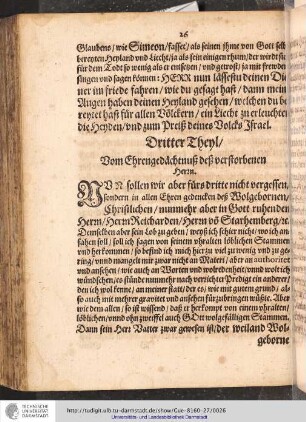 26
Glaubens/ wie Simeon/ fasset/ als seinen ihme von Gott selb
bereyten Heyland vnd Liecht/ ja als sein einigen rhum/ der wirdt sich
für dem Todt so wenig als er entsetzen/ vnd getrost/ ja mit frewden
singen vnd sagen können: HERR nun lässestu deinen Die-
ner im friede fahren/ wie du gesagt hast/ dann mein
Augen haben deinen Heyland gesehen/ welchen du be-
reytet hast für allen Völckern/ ein Liecht zu erleuchten
die Heyden/ vnd zum Preiß deines Volcks Israel.
Dritter Theyl/
Vom Ehrengedächtnuß deß verstorbenen
Herrn.
NVN sollen wir aber fürs dritte nicht vergessen/
sondern in allen Ehren gedencken deß Wolgebornen/
Christlichen/ nunmehr aber in Gott ruhenden
Herrn/ Herrn Reicharden/ Herrn võ Starhemberg/ ꝛc.
Demselben aber sein Lob zu geben/ weyß ich schier nicht/ wo ich an-
fahen soll/ soll ich sagen von seinem vhralten löblichen Stammen
vnd herkommen/ so befind ich mich hier zu viel zu wenig vnd zu ge-
ring/ vnnd mangelt mir zwar nicht an Materi/ aber an authoritet
vnd ansehen/ wie auch an Worten vnd wolredenheit/ vnnd wolt ich
wündschen/ es stünde nunmehr nach verrichter Predig ein anderer/
den ich wol kenne/ an meiner statt/ der es/ wie mit gutem grund/ al-
so auch mit mehrer gravitet vnd ansehen fürzubringen wüßte. Aber
wie dem allen/ so ist wissend/ daß er herkompt von einem vhralten/
löblichen/ vnnd ohn zweiffel auch GOtt wolgefälligen Stammen.
Dann sein Herr Vatter zwar gewesen ist/ der weiland Wol-
geborne
TECHNISCHE
UNIVERSITÄT
DARMSTADT
http://tudigit.ulb.tu-darmstadt.de/show/Gue-8160-27/0026
Universitäts- und Landesbibliothek Darmstadt